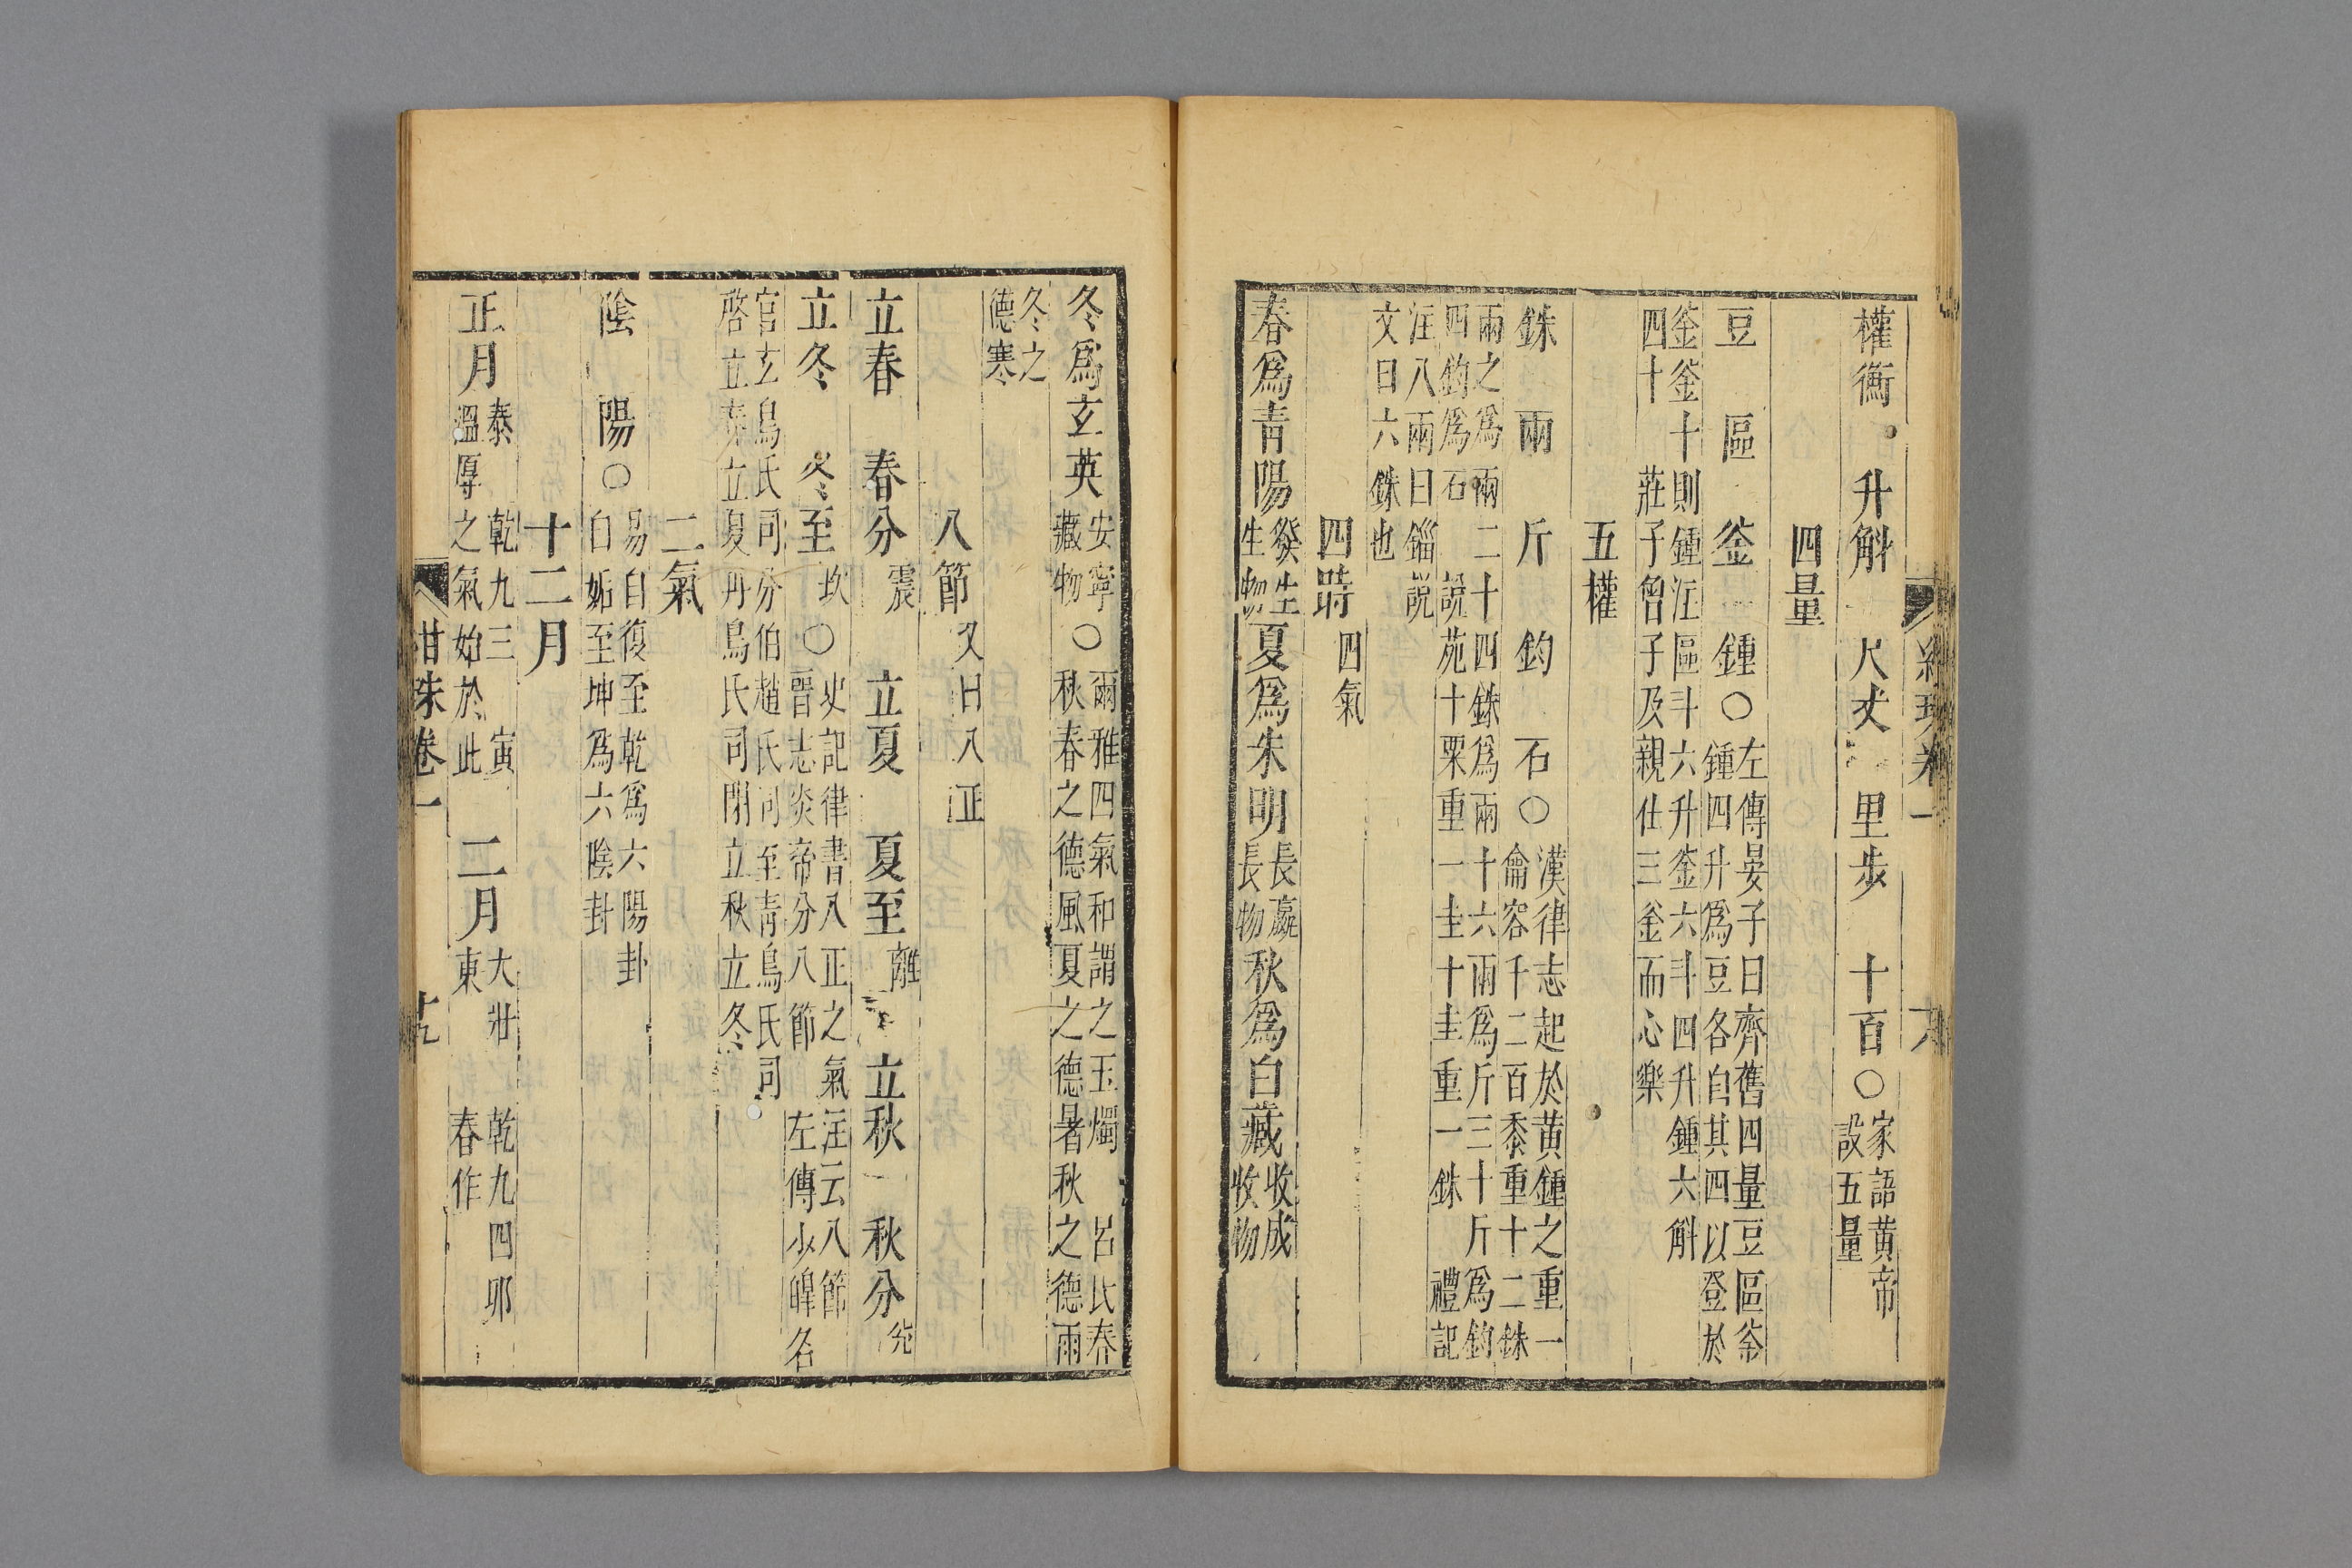 權衡 升斛 尺丈 里步 十百○家語黃帝
設五量
四量
豆 區 釜 鍾○左傳晏子曰齊舊四量豆區釜
鍾四升爲豆各自其四以登於
釜釜十則鍾注區斗六升釜六斗四升鍾六斛
四十 莊子曾子及親仕三釜而心樂
五權
銖 兩 斤 鈞 石○漢律志起於黃鍾之重一
龠容千二百黍重十二銖
兩之爲兩二十四銖爲兩十六兩爲斤三十斤爲鈞
四鈞爲石 說苑十粟重一圭十圭重一銖 禮記
注八兩曰錙說
文曰六銖也
四時四氣
春爲青陽發生
生物夏爲朱明長嬴
長物秋爲白藏收成
收物
冬爲玄英安寧
藏物○爾雅四氣和謂之玉燭 呂氏春
秋春之德風夏之德暑秋之德雨
冬之
德寒
八節又曰八正
立春 春分震 立夏 夏至離 立秋 秋分兌
立冬 冬至坎○史記律書八正之氣注云八節
晉志炎帝分八節 左傳少皞名
官玄鳥氏司分伯趙氏司至青鳥氏司
啓立春立夏丹鳥氏司閉立秋立冬
二氣
陰 陽○易自復至乾爲六陽卦
自姤至坤爲六陰卦
十二月
正月泰 乾九三 寅
溫厚之氣始於此 二月大壯 乾九四 卯
東 春作
卷一